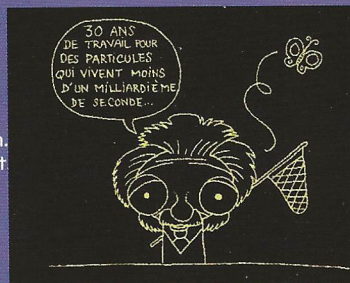 30 ANS
DE TRAVAIL POUR
DES PARTICULES
QUI VIVENT MOINS
D'UN MILLIARDIÈME
DE SECONDE...
n.
t